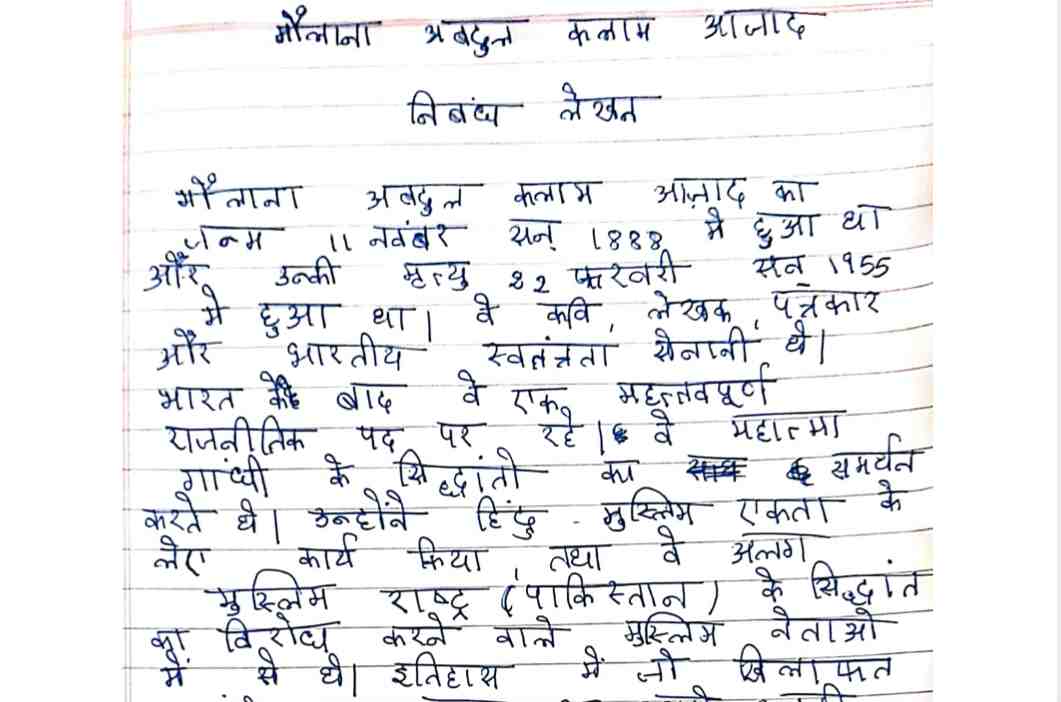 मौलाना अबदुल कलाम आजाद
निबंध लेखन
मौलाना अबदुल कलाम आज़ाद का
जन्म 11 नवंबर सन् 1888 मे हुआ था
और उन्की मृत्यु 22 फरवरी सन 1955
मे हुआ था। वे कवि, लेखक, पत्रकार
और भारतीय स्वतंत्रता सेनानी थे।
भारत के बाद वे एक महत्तवपूर्ण
राजनीतिक पद पर रहे। वे महात्मा
गांधी के सिद्धांतो का समर्थन
करते थे। उन्होंने हिंदु - मुस्लिम एकता के
लेए कार्य किया, तथा वे अलग
मुस्लिम राष्ट्र (पाकिस्तान) के सिद्धांत
का विरोध करने वाले मुस्लिम नेताओ
में से थे। इतिहास में जो खिलाफत